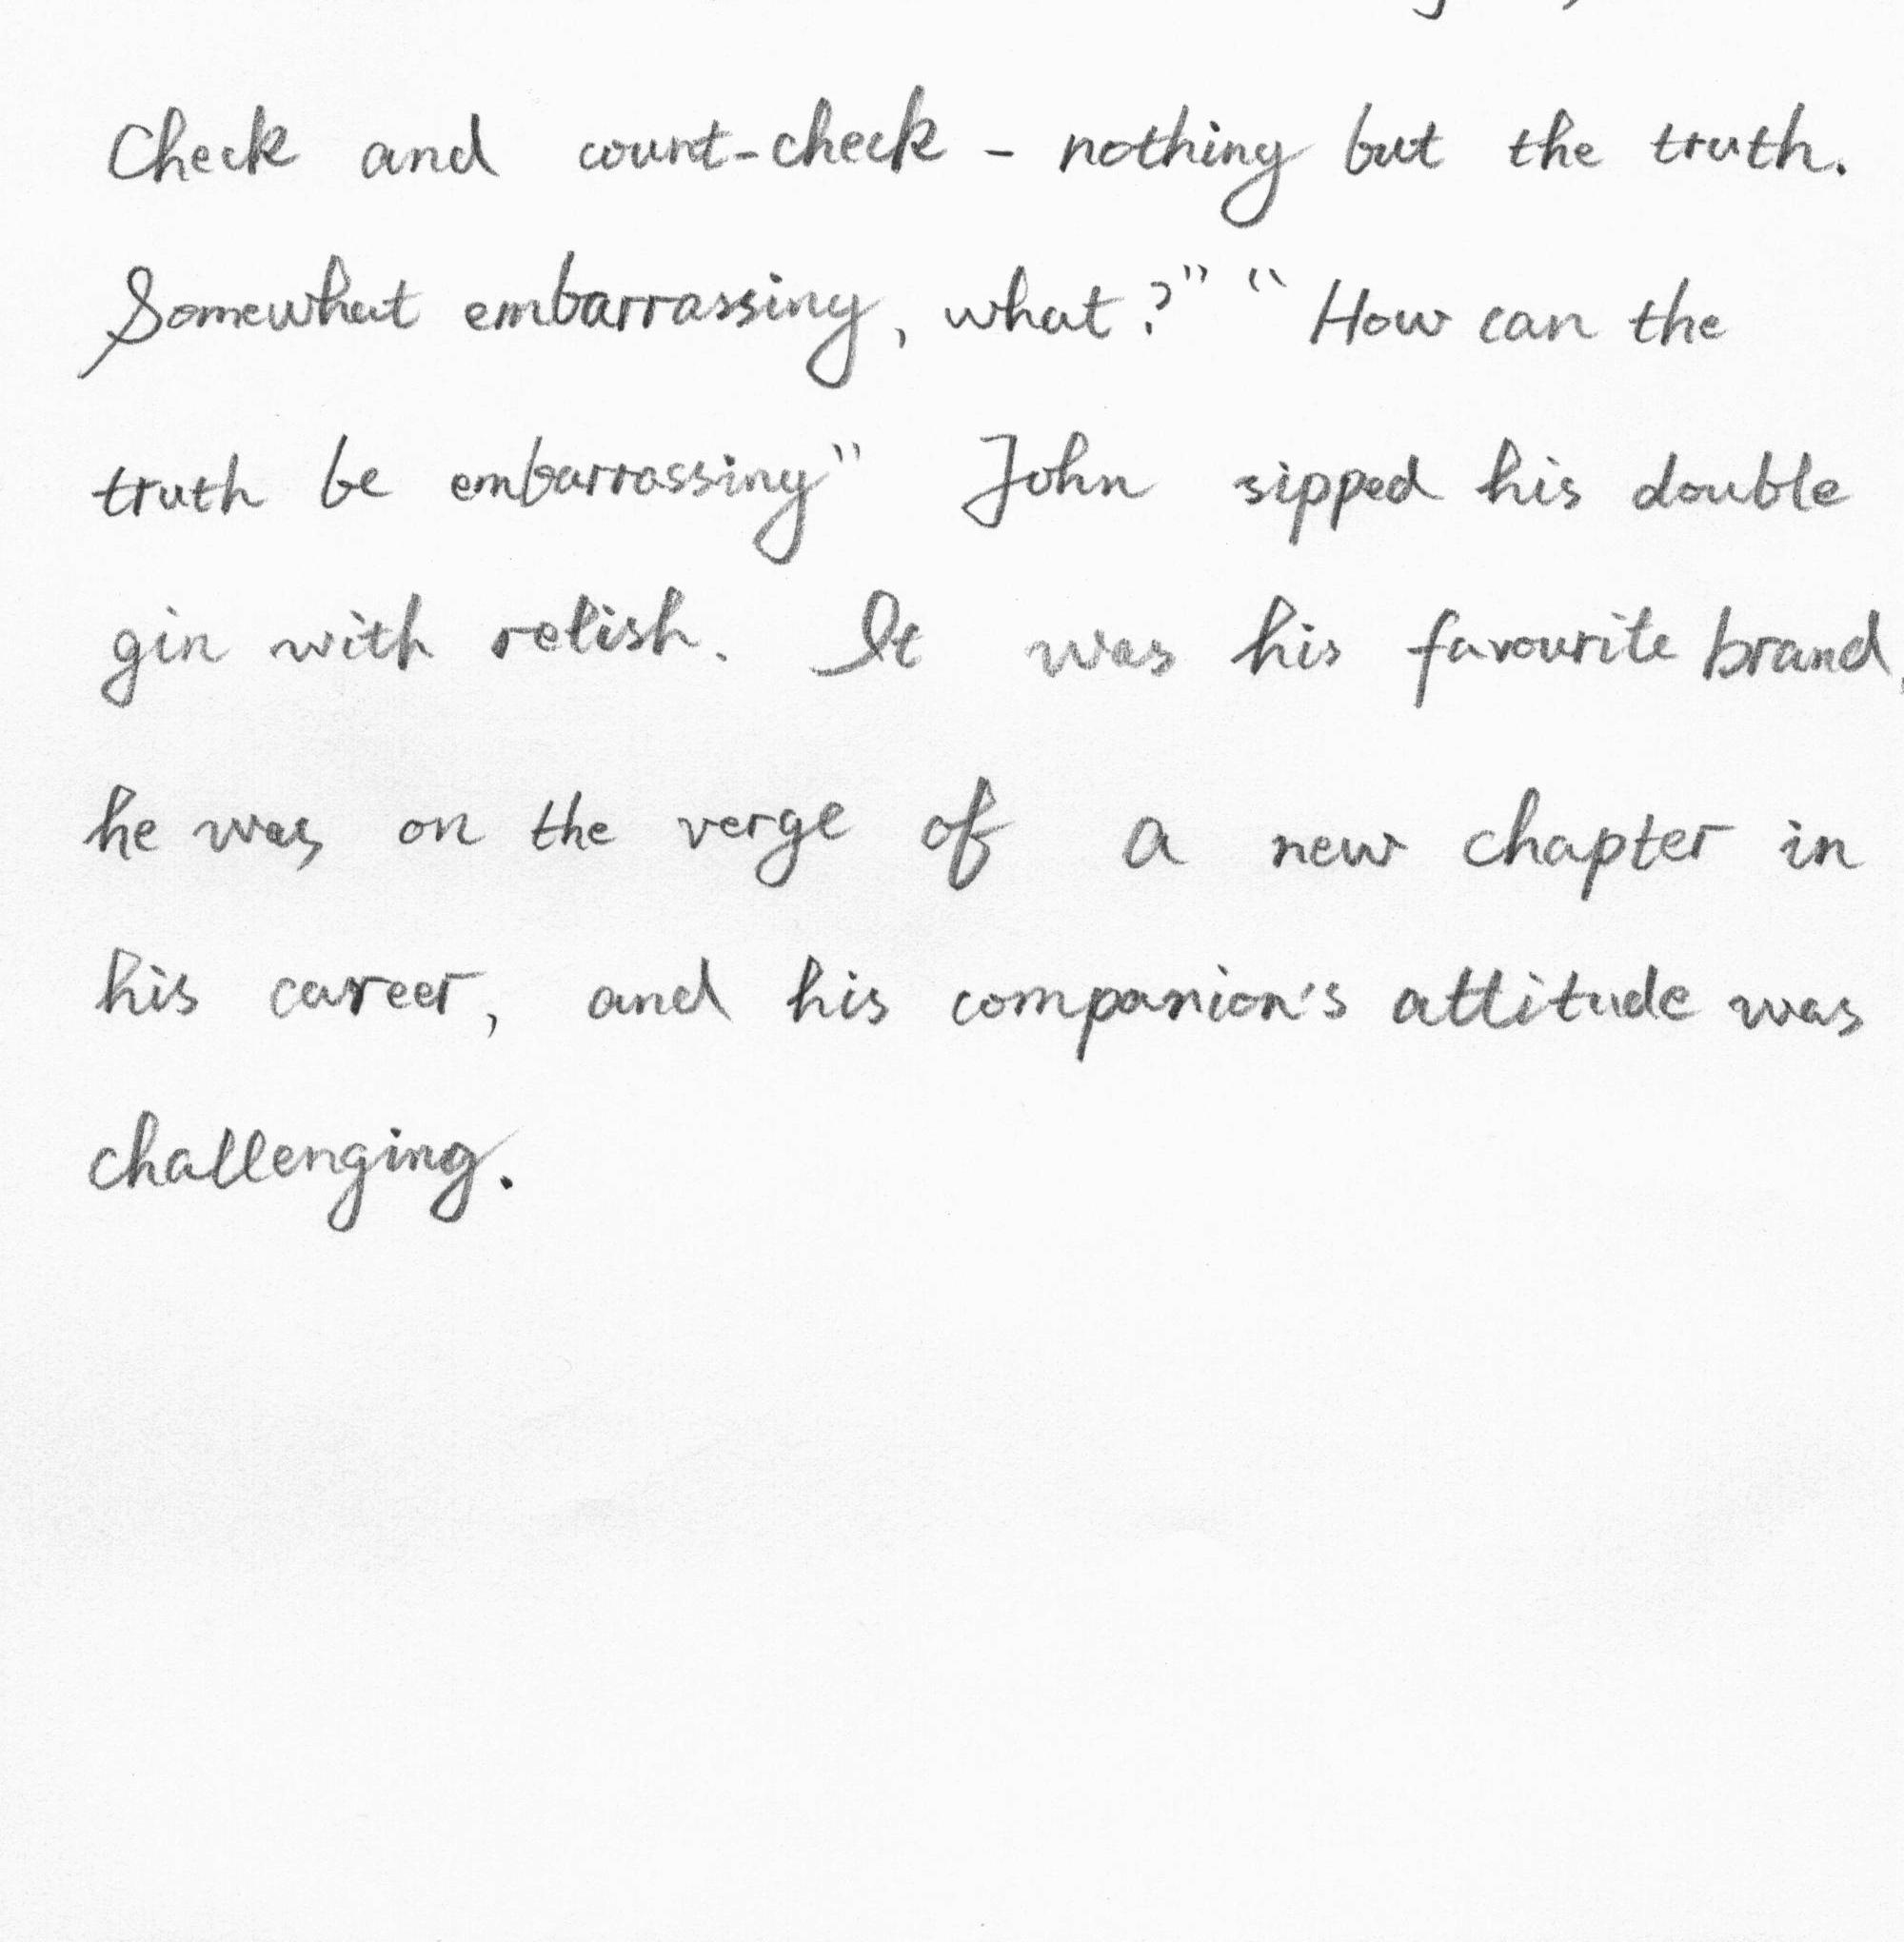 Check and count-check - nothing but the truth.
Somewhat embarrassing, what?" "How can the
truth be embarrassing" John sipped his double
gin with relish. It was his favourite brand,
he was on the verge of a new chapter in
his career, and his companion's attitude was
challenging.